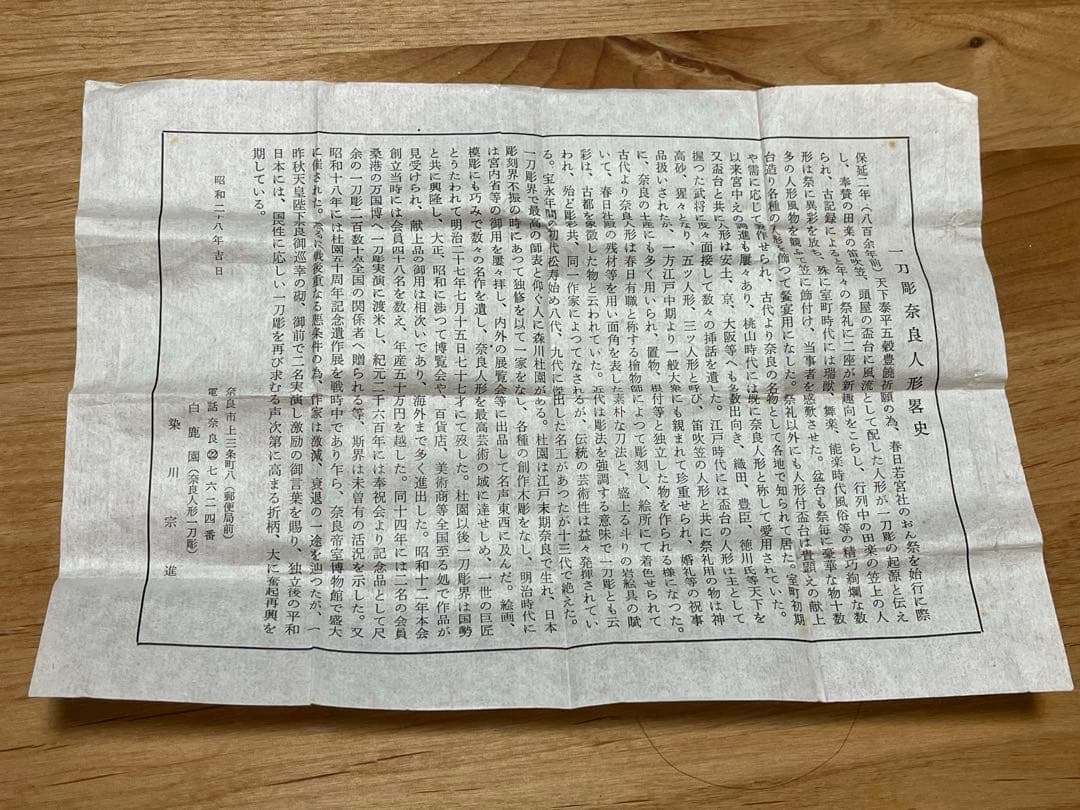 一刀彫奈良人形畧史
保延二年(八百余年前)天下泰平五穀豊饒祈願の為、春日若宮社のおん祭を始行に際
し、奉賛の田楽の笛吹笠、頭屋の盃台に風流として配した人形が一刀彫の起源と伝え
られ、古記録によると年々の祭礼に二座が新趣向をこらし、行列中の田楽の笠上の人
形は祭に異彩を放ち、殊に室町時代には瑞獣、舞楽、能楽時代風俗等の精巧絢爛な数
多の人形風物を観せて笠に飾付け、当事者を感歎させた。盆台も祭毎に豪華な物十数
台造り各種の人形を飾つて饗宴用になした。祭礼以外にも人形付盃台は貴顕えの献上
や需に応じて製作せられ、古代より奈良の名物として各地で知られて居た。室町初期
以来宮中えの調進も屢々あり、桃山時代には既に奈良人形と称して愛用されていた。
又盃台と共に人形は安土、京、大阪等へも多数出向き、織田、豊臣、徳川氏等天下を
握つた武将に度々面接して数々の挿話を遺した。江戸時代には盃台の人形は主として
高砂、猩々となり、五ツ人形、三ツ人形と呼び、笛吹笠の人形と共に祭礼用の物は神
品扱いされたが、一方江戸中期より一般大衆にも親まれて珍重せられ、婚礼等の祝事
に、奈良の土産にも多く用いられ、置物、根付等と独立した物を作られる様になつた。
古代より奈良人形は春日有職と称する檜物師によつて彫刻し、絵所にて着色せられて
いて、春日社殿の残材等を用い面角を表した素朴な刀法と、盛上る斗りの岩絵具の賦
彩は、古都を象徴した物と云われていた。近代は彫法を強調する意味で一刀彫とも云
われ、殆ど彫彩共、同一作家によつてなされるが、伝統の芸術性は益々発揮されてい
る。宝永年間の初代松寿始め八代、九代に傑出した名工があつたが十三代で絶えた。
一刀彫界で最高の師表と仰ぐ人に森川杜園がある。杜園は江戸末期奈良で生れ、日本
彫刻界不振の時にあつて独修を以て一家をなし、各種の創作木彫をなし、明治時代に
は宮内省等の御用を屢々拝し、内外の展覧会等に出品して名声東西に及んだ。絵画、
模彫にも巧みで数々の名作を遺し、奈良人形を最高芸術の域に達せしめ、一世の巨匠
とうたわれて明治二十七年七月十五日七十七才にて歿した。杜園以後一刀彫界は国勢
と共に興隆し、大正、昭和に渉つて博覧会や、百貨店、美術商等全国至る処で作品が
見受けられ、献上品の御用は相次いであり、海外まで多く進出した。昭和十二年本会
創立当時には会員四十八名を数え、年産五十万円を越した。同十四年には二名の会員
桑港の万国博へ一刀彫実演に渡米し、紀元二千六百年には奉祝会より記念品として尺
余の一刀彫二百数十点全国の関係者へ贈られる等、斯界は未曽有の活況を示した。又
昭和十八年には杜園五十周年記念遺作展を戦時中であり乍ら、奈良帝室博物館で盛大
に催された。戦後重なる悪条件の為、作家は激減、衰退の一途を辿つたが、一
昨秋天皇陛下奈良御巡幸の砌、御前で二名実演し激励の御言葉を賜り、独立後の平和
日本には、国民性に応しい一刀彫を再び求むる声次第に高まる折柄、大に奮起再興を
期している。
昭和二十八年吉日
奈良市上三条町八(郵便局前)
電話奈良②七六二四番
白鹿園(奈良人形一刀彫)
染川宗進